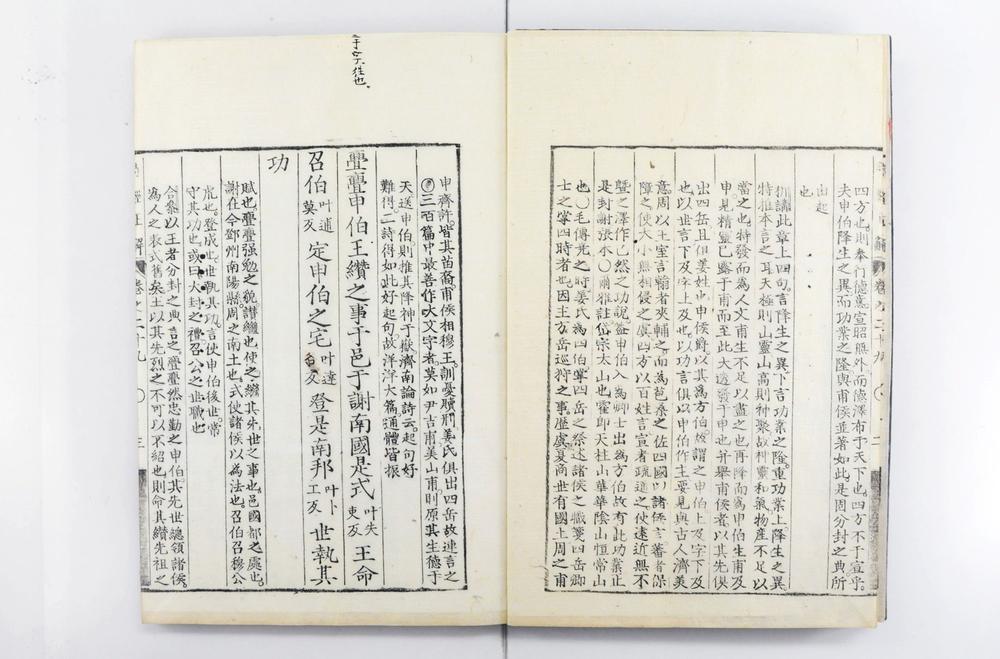 四方也則奉行德意宣昭熙外而德澤布于天下也四方不于宣乎
夫申伯降生之異而功業之隆與甫侯並著如此是固分封之典所
由起
也
訓講此章上四句言降生之異下言功業之隆重功業上降生之異
特推本言之耳天極則山靈山高則神聚故神靈和氣物產不足以
當之也特發而為人文甫生不足以盡之也再降而為申伯生甫及
申見精靈已露于甫而至此大透發于申也并舉甫侯者以其先俱
出四岳且俱姜姓也申侯爵以其為方伯故謂之申伯上及字下及
也以世言下及字上及也以功言俱以申伯作主要見與古人濟美
意周以王室言翰者夾輔之而為苞桑之佐四國以諸侯言蕃者保
障之使大小無相侵之虞四方以百姓言宣者疏通之使遠近無不
暨之澤作已然之功說盖申伯入為卿士出為方伯故有此功業正
是封謝張本○爾雅註岱宗太山也霍即天柱山華華陰山恒常山
也○毛傳堯之時姜氏為四伯掌四岳之祭述諸侯之職箋四岳卿
士之掌四時者也因主方岳巡狩之事歷虞夏商世有國土周之甫
申齊許皆其苗裔甫侯相穆王訓夏贖刑姜氏俱出四岳故連言之
○三百篇中最善作大文字者莫如尹吉甫美山甫則原其生德于
天送申伯則推其降神于嶽濟南論詩云起句好
難得二詩得如此好起句故洋洋大篇通體皆振
亹亹申伯王纘之事于邑于謝南國是式叶失吏反王命
召伯叶逋莫反定申伯之宅叶達各反登是南邦叶卜工反世執其
功
賦也亹亹强勉之貌纘繼也使之繼其先世之事也邑國都之處也
謝在今鄧州南陽縣周之南土也式使諸侯以為法也召伯召穆公
虎也登成也世執其功言使申伯後世常
守其功也或曰大封之禮召公之世職也
合叅以王者分封之典言之亹亹然忠勤之申伯其先世總領諸侯
為人之表式舊矣王以其先烈之不可以不紹也則命其纘先祖之